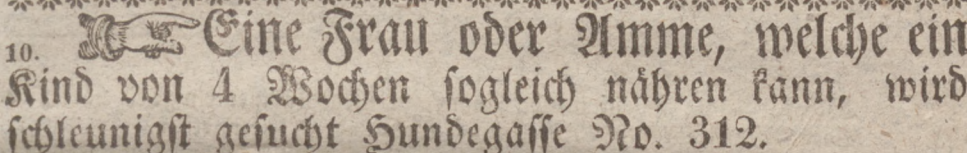 10. Eine Frau oder Amme, welche ein
Kind von 4 Wochen sogleich nähren kann, wird
schleunigst gesucht Hundegasse No. 312.